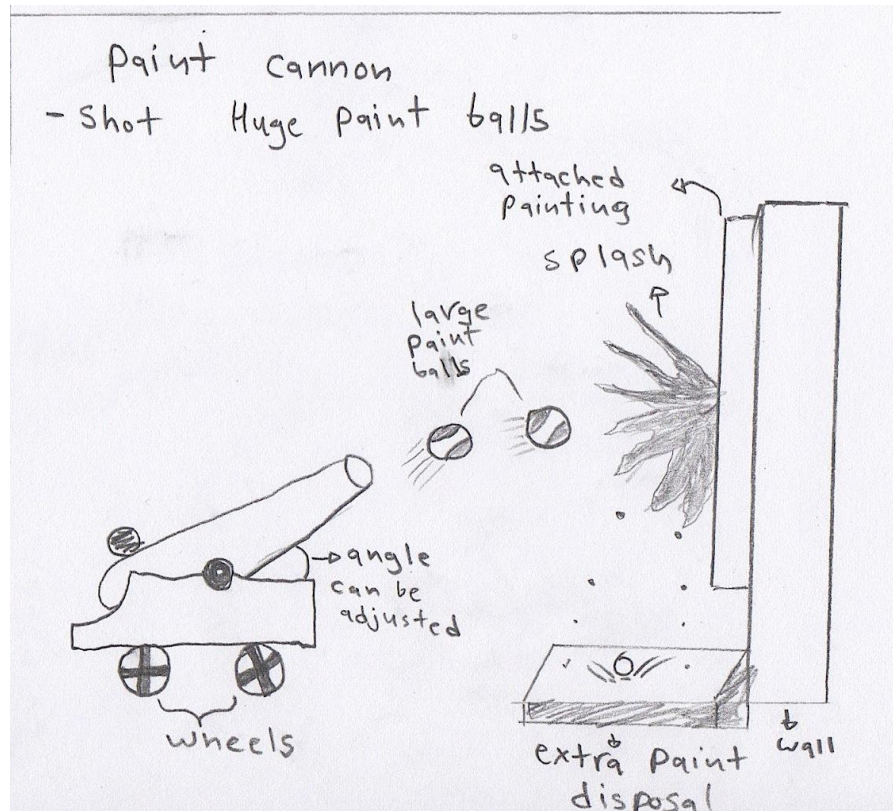 Paint cannon
- Shot Huge Paint balls
attached
Painting
splash
large
paint
balls
angle
can be
adjusted
wheels
extra Paint
disposal
wall